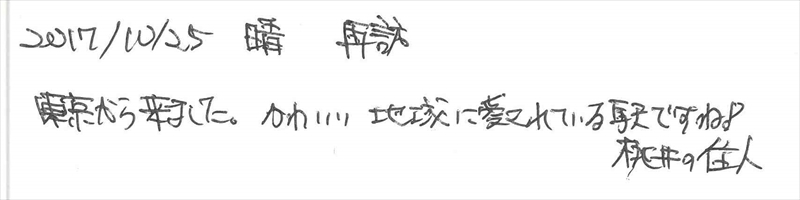 2017/10/25 晴 再訪
東京から来ました。かわいい 地域に愛されている駅ですね♪
桃井の住人